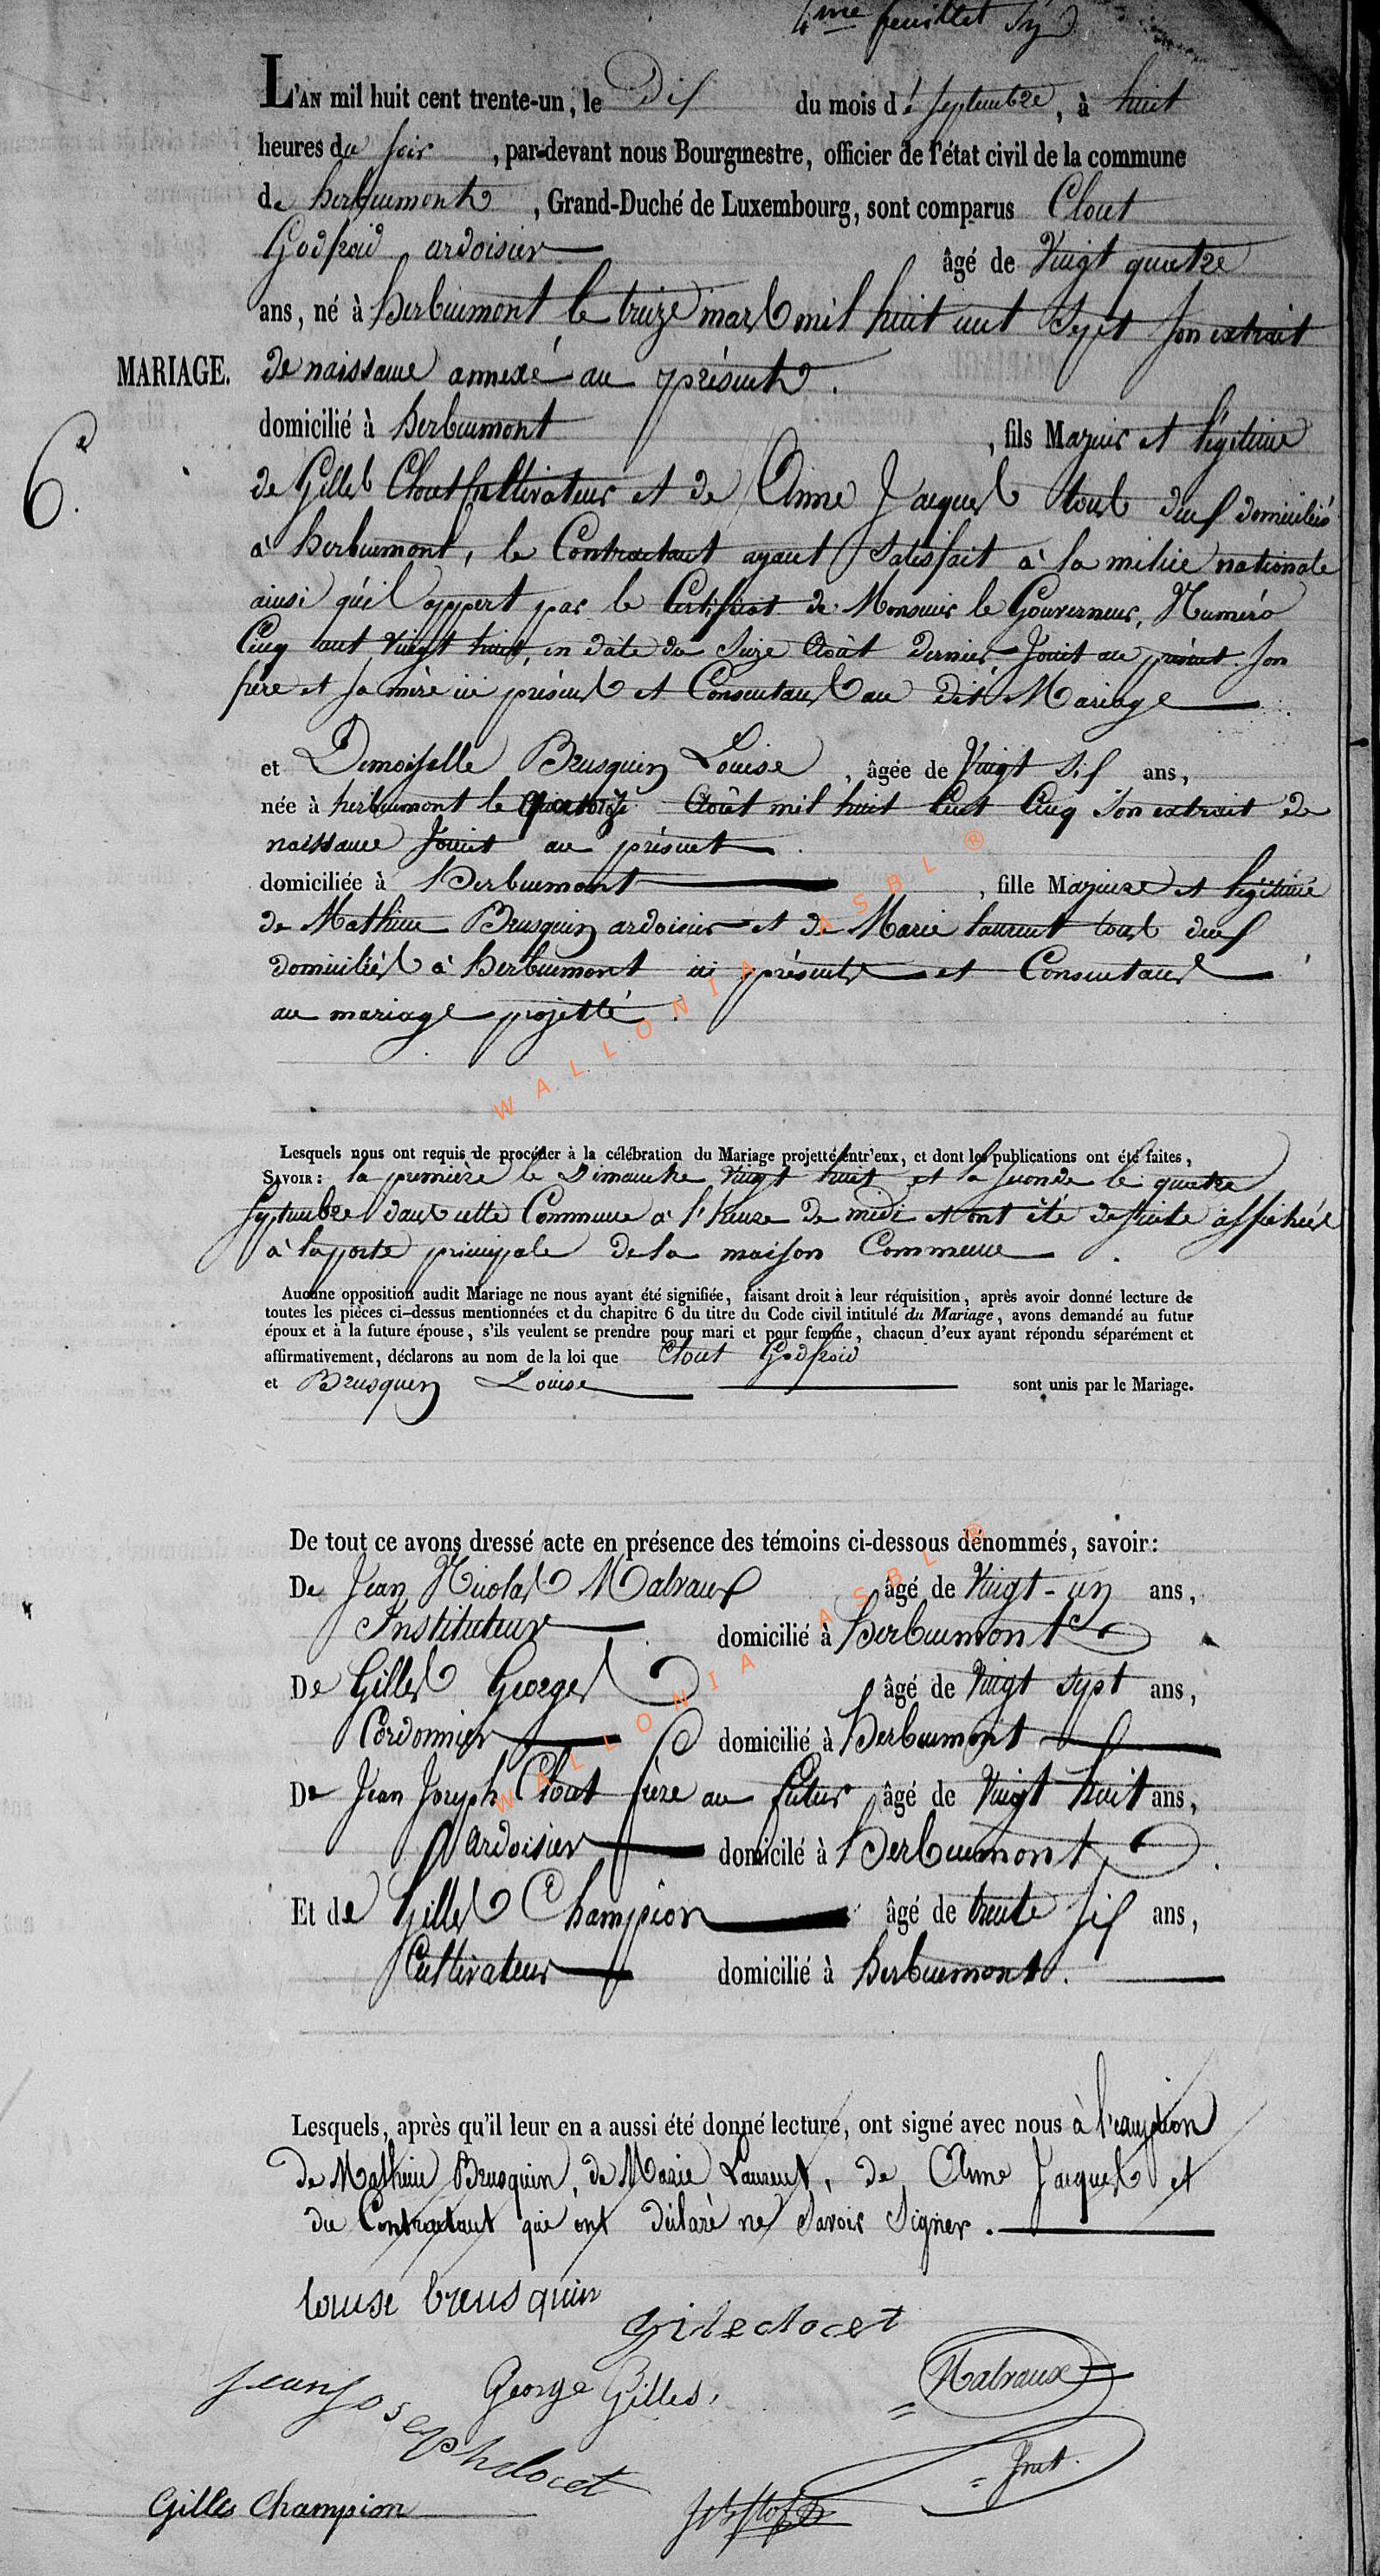 4me feuillet
L'AN mil huit cent trente-un, le Dix du mois de Septembre, à huit
heures du soir, par-devant nous Bourgmestre, officier de l'état civil de la commune
de herbeumont, Grand-Duché de Luxembourg, sont comparus Clout
Godfroid ardoisier âgé de Vingt quatre
ans, né à Herbeumont le treize mars mil huit cent Sept Son extrait
MARIAGE. de naissance annexé au présent.
6e
domicilié à herbeumont, fils Majeur et légitime
de Gilles Clout Cultivateur et de Anne Jacques tous deux domiciliés
à herbeumont, le Contractant ayant Satisfait à la milice nationale
ainsi qu'il appert par le Certificat de Monsieur le Gouverneur, Numéro
Cinq cent vingt huit, en date du Seize Août dernier, Joint au présent. Son
père et sa mère ici présents et Consentans au dit Mariage
et Demoiselle Brusquin Louise, âgée de Vingt Six ans,
née à herbeumont le Quatorze Août mil huit Cent Cinq Son extrait de
naissance Joint au présent.
domiciliée à Herbeumont, fille Majeure et légitime
de Mathieu Brusquin ardoisier et de Marie laurent tous deux
domiciliés à herbeumont ici présents et Consentans
au mariage projetté.
Lesquels nous ont requis de procéder à la célébration du Mariage projetté entr'eux, et dont les publications ont été faites,
SAVOIR: la première le Dimanche vingt huit et la seconde le quatre
Septembre dans cette Commune à l'heure de midi et ont été de suite affichées
à la porte principale de la maison Commune.
Aucune opposition audit Mariage ne nous ayant été signifiée, faisant droit à leur réquisition, après avoir donné lecture de
toutes les pièces ci-dessus mentionnées et du chapitre 6 du titre du Code civil intitulé du Mariage, avons demandé au futur
époux et à la future épouse, s'ils veulent se prendre pour mari et pour femme, chacun d'eux ayant répondu séparément et
affirmativement, déclarons au nom de la loi que Clout Godfroid
et Brusquin Louise sont unis par le Mariage.
De tout ce avons dressé acte en présence des témoins ci-dessous dénommés, savoir:
De Jean Nicolas Malvaux âgé de Vingt-un ans,
Instituteur domicilié à Herbeumont
De Gilles Georges âgé de Vingt sept ans,
Cordonnier domicilié à Herbeumont
De Jean Joseph Clout frère au futur âgé de Vingt huit ans,
ardoisier domicilé à Herbeumont
Et de Gilles Champion âgé de trente six ans,
Cultivateur domicilié à herbeumont.
Lesquels, après qu'il leur en a aussi été donné lecture, ont signé avec nous à l'exception
de Mathieu Brusquin, de Marie Laurent, de Anne Jacques et
du Contractant qui ont déclaré ne Savoir Signer.
louise brusquin
Gile clocet
Jean Joseph clocet
George Gilles,
Malvaux
Inst.
Gilles Champion
WALLONIA ASBL ®
WALLONIA ASBL ®